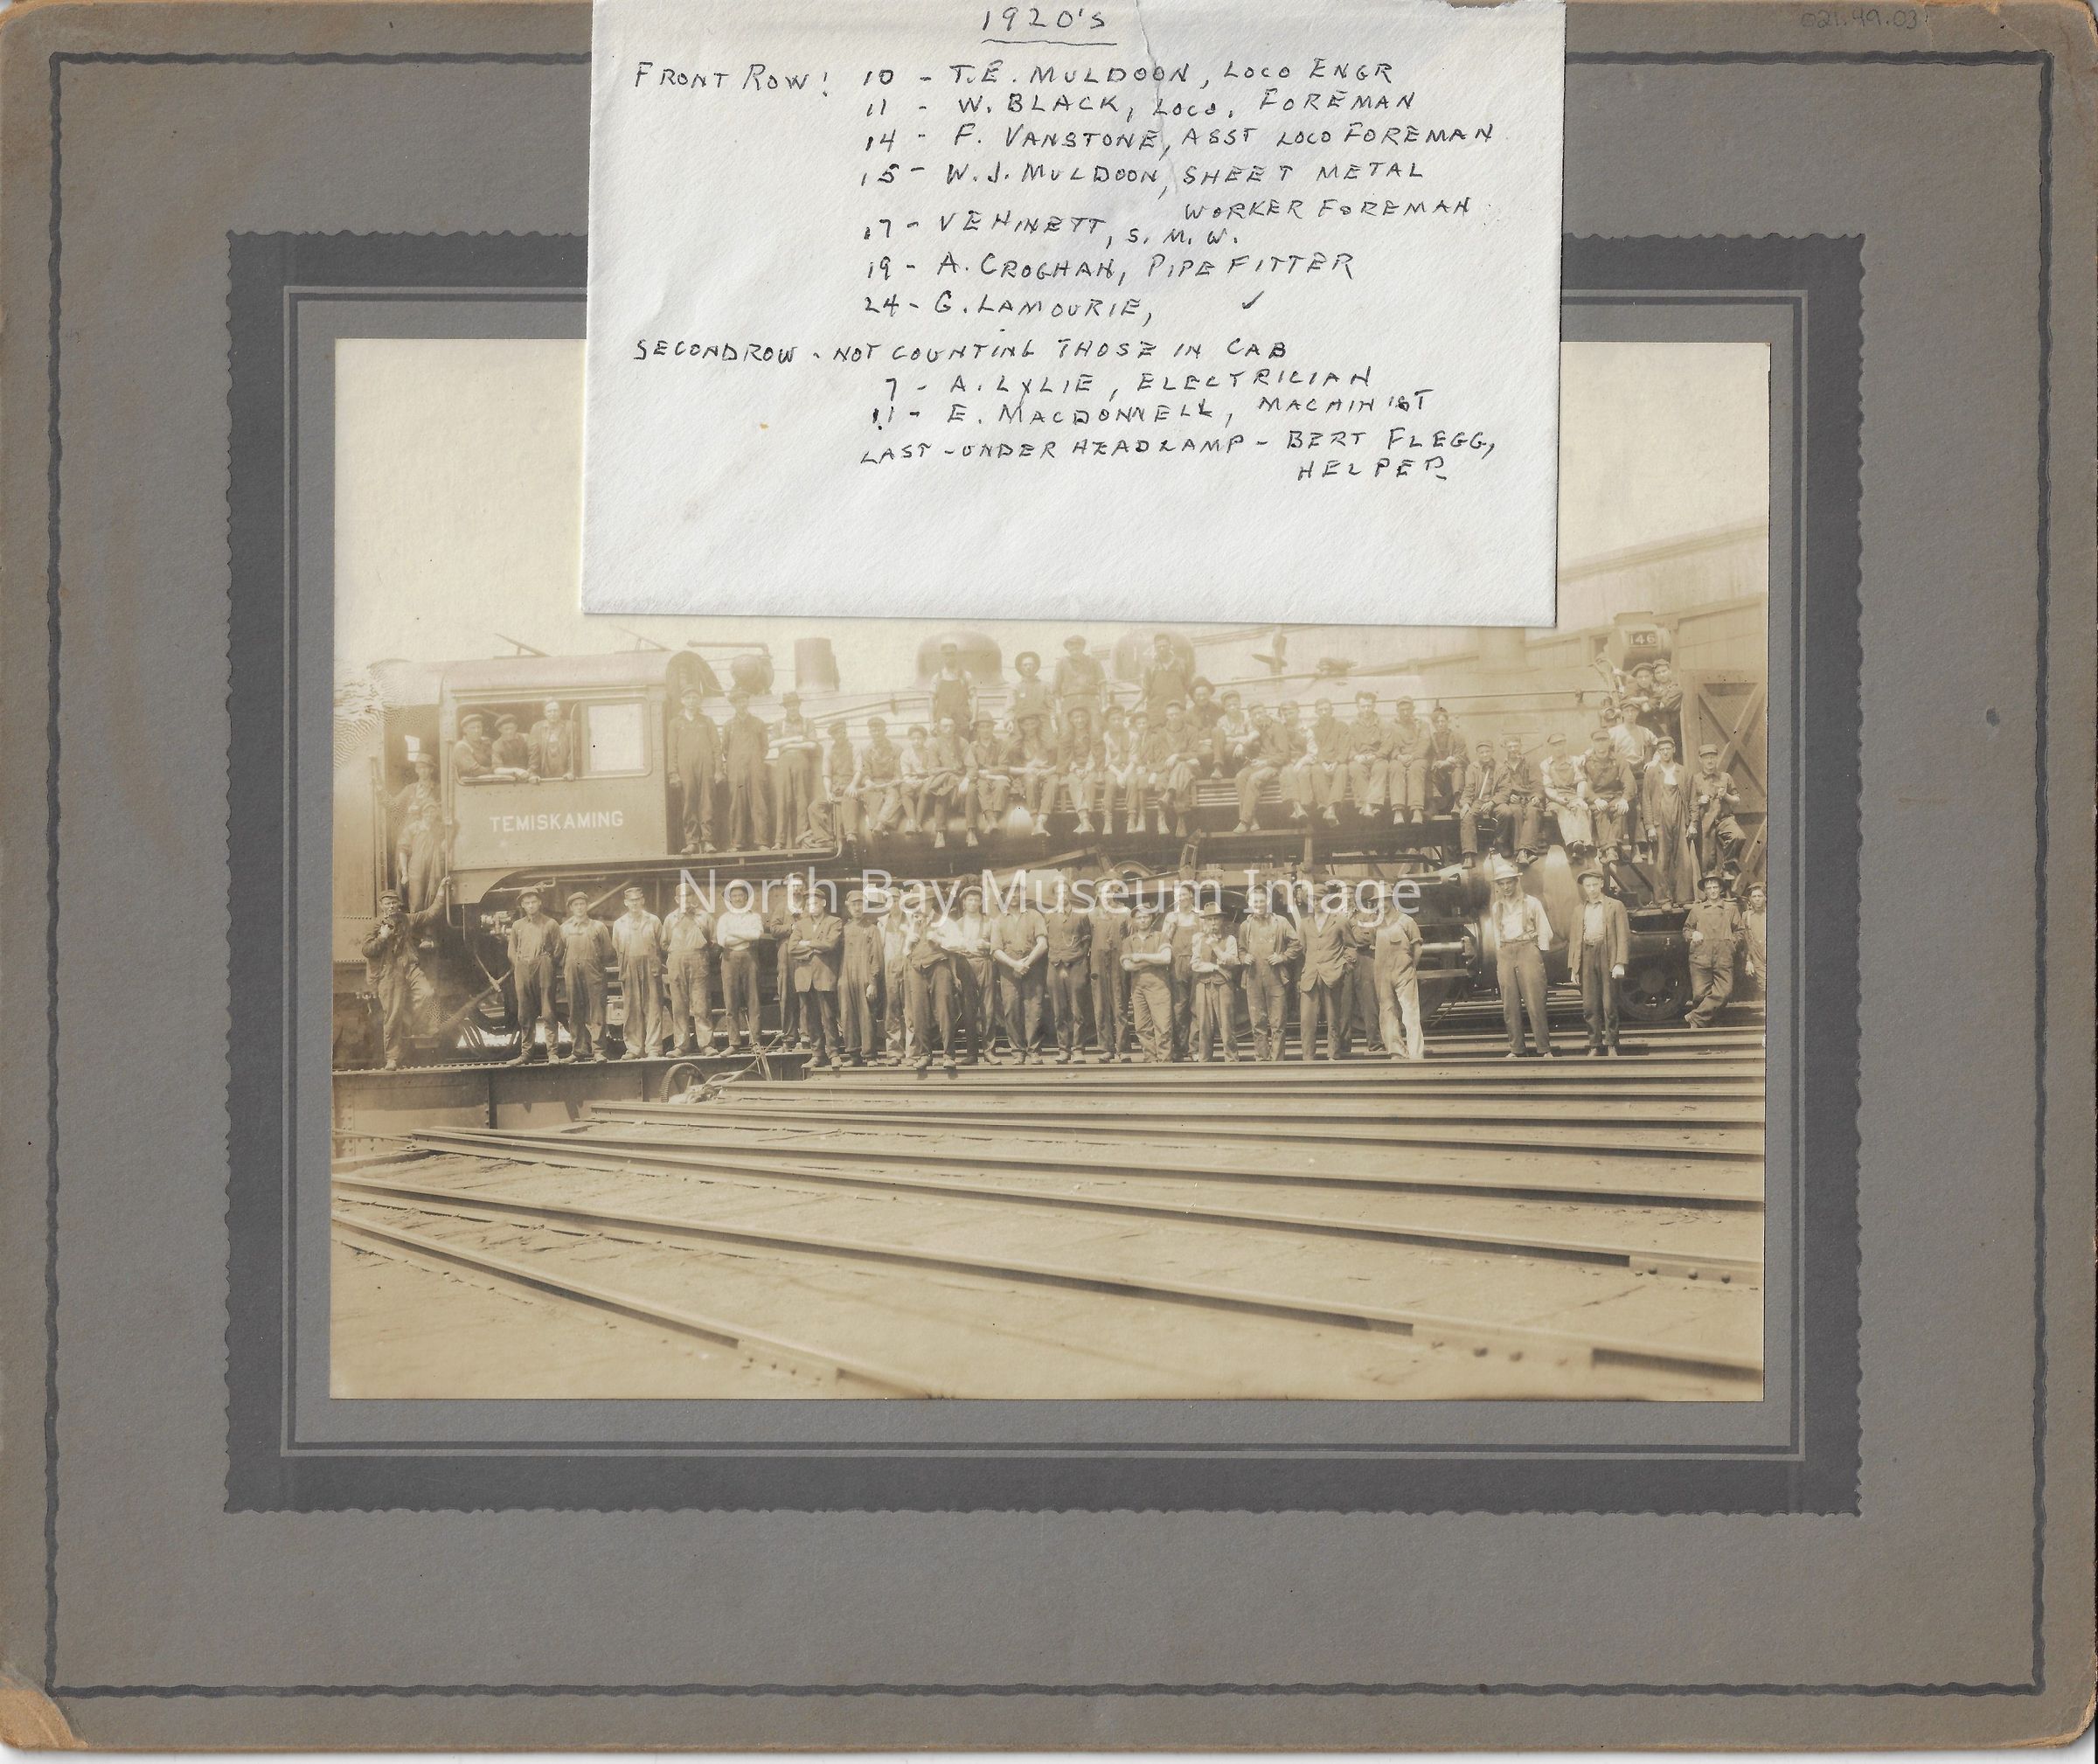 021.49.03
1920's
FRONT ROW: 10 - T.E. MULDOON, LOCO ENGR
11 - W. BLACK, LOCO. FOREMAN
14 - F. VANSTONE, ASST LOCO FOREMAN
15 - W.J. MULDOON, SHEET METAL
WORKER FOREMAN
17 - VEHINETT, S.M.W.
19 - A. CROGHAN, PIPE FITTER
24 - G. LAMOURIE, ✓
SECOND ROW - NOT COUNTING THOSE IN CAB
7 - A. LYLIE, ELECTRICIAN
11 - E. MACDONNELL, MACHINIST
LAST - UNDER HEADLAMP - BERT FLEGG,
HELPER
146
TEMISKAMING
North Bay Museum Image